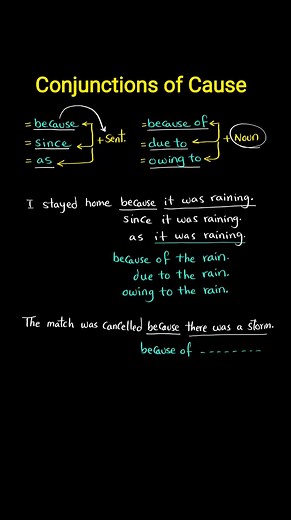 Conjunctions of Cause
= because = because of
= since + Sent. = due to + Noun
= as = owing to
I stayed home because it was raining.
since it was raining.
as it was raining.
because of the rain.
due to the rain.
owing to the rain.
The match was cancelled because there was a storm.
because of --------